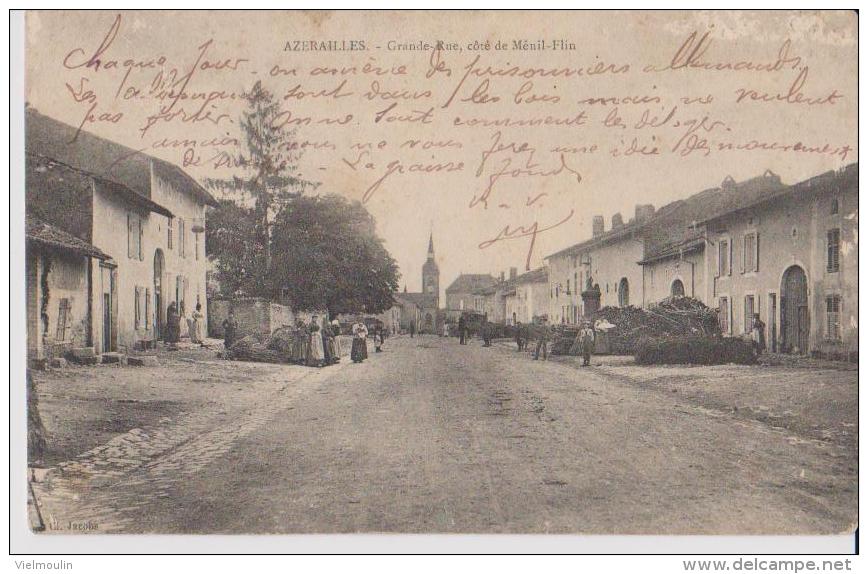 AZERAILLES. - Grande-Rue, côté de Ménil-Flin
Chaque jour on amène des prisonniers allemands.
Les allemands sont dans les bois mais ne veulent
pas sortir. On ne sait comment les déloger.
nous ne vous ferez une idée des mouvements
de
La graisse
Cl. Jacobs
Vielmoulin
www.delcampe.net